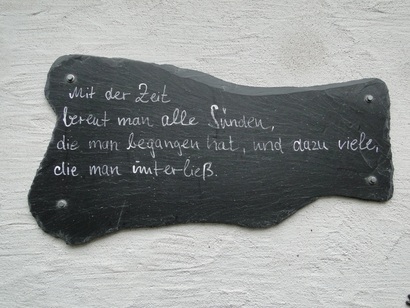 Mit der Zeit
bereut man alle Sünden,
die man begangen hat, und dazu viele,
die man unterließ.